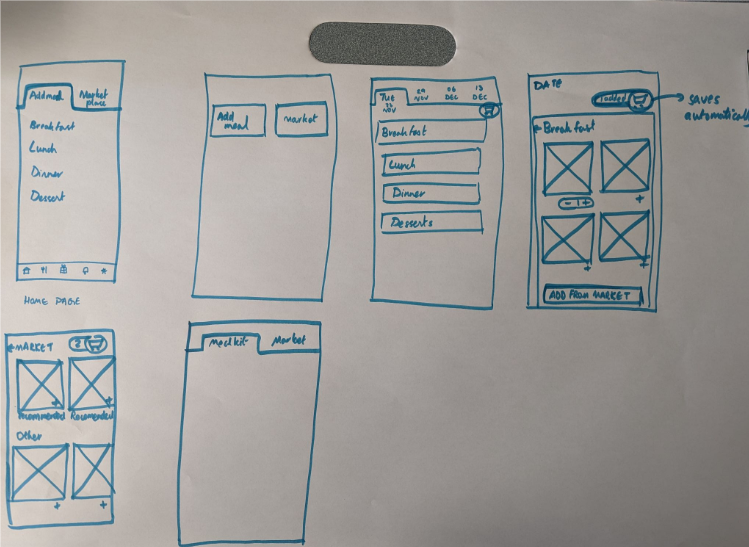 Add meal
Market
place
Breakfast
Lunch
Dinner
Dessert
HOME PAGE
Add
meal
Market
Tue
22
NOV
29
NOV
06
DEC
13
DEC
Breakfast
Lunch
Dinner
Desserts
DATE
1 added
SAVES
automatically
Breakfast
- 1 +
+
+
+
ADD FROM MARKET
MARKET
2
+
+
Recommended
Other
+
+
Mealkit
Market